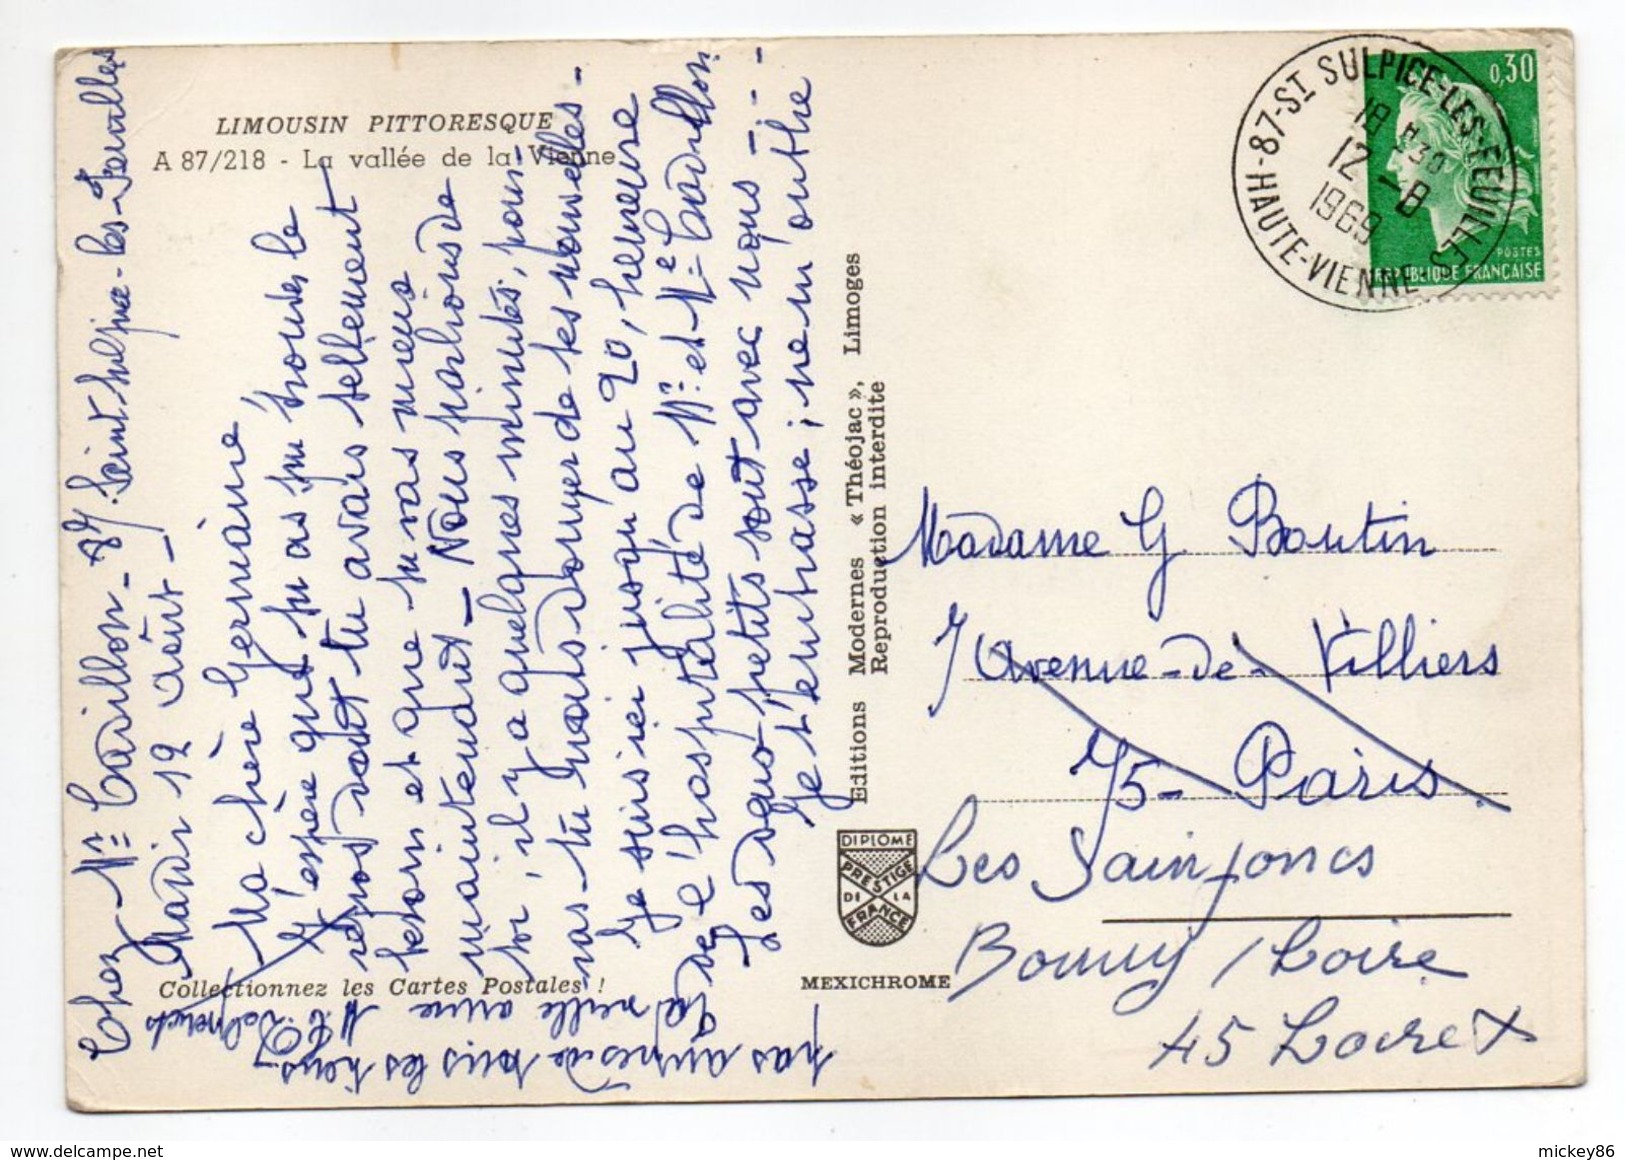 LIMOUSIN PITTORESQUE
A 87/218 - La vallée de la Vienne
Chez Mr Carillon - 87 Saint Sulpice-les-Feuilles
Mardi 12 Août -
Ma chère Germaine,
J'espère que tu as pu trouver le
repos dont tu avais tellement
besoin et que tu vas mieux
maintenant - Nous parlions de
toi, il y a quelques minutes, pour-
vas-tu nous donner de tes nouvelles -
Je suis ici jusqu'au 20, heureuse
de l'hospitalité de Mr et Me Carillon
Les deux petits sont avec nous -
Je t'embrasse ; ne m'oublie
pas auprès de tous les tiens -
Ta vieille amie
Editions Modernes « Théojac », Limoges
Reproduction interdite
DIPLOME
PRESTIGE
DE LA
FRANCE
Collectionnez les Cartes Postales !
MEXICHROME
0,30
POSTES
REPUBLIQUE FRANÇAISE
87-ST SULPICE-LES-FEUILLES
HAUTE-VIENNE
18 H 30
12 - 8
1969
Madame G Boutin
7 Avenue-de-Villiers
75 - Paris
Les Sainjoncs
Bonny / Loire
45 Loiret
mickey86